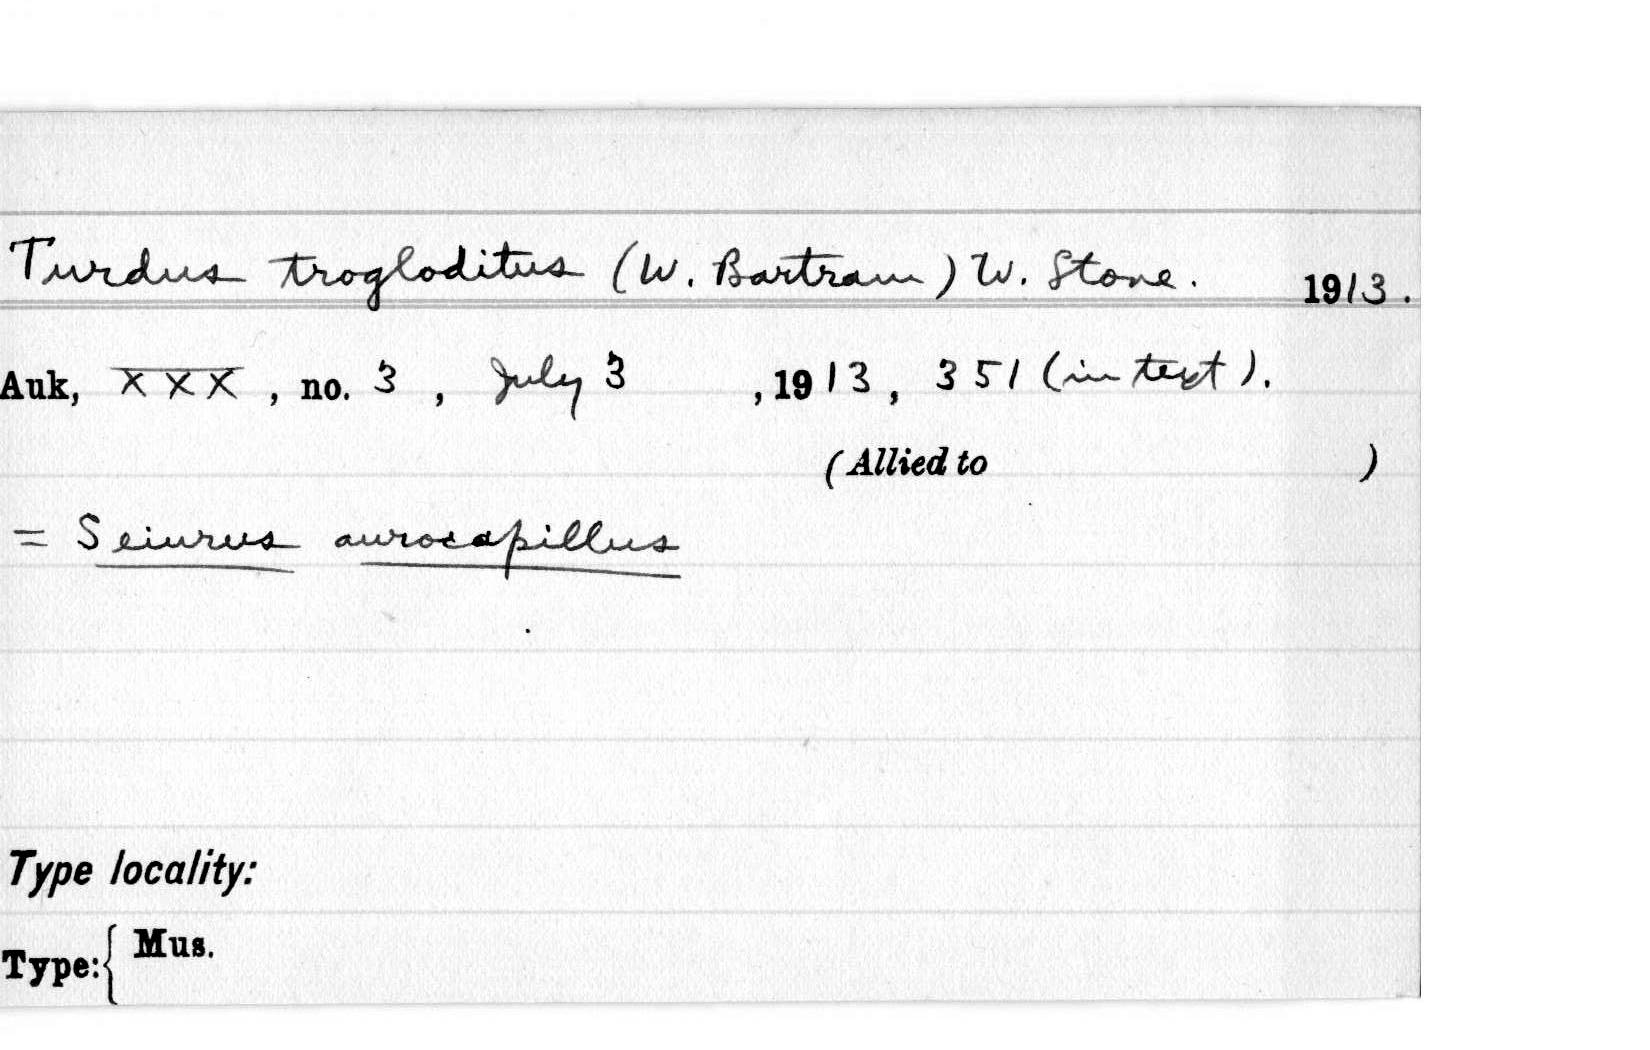 Turdus trogloditus (W. Bartram) W. Stone. 1913.
Auk, XXX, no. 3, July 3, 1913, 351 (in text).
(Allied to )
= Seiurus aurocapillus
Type locality:
Type: { Mus.